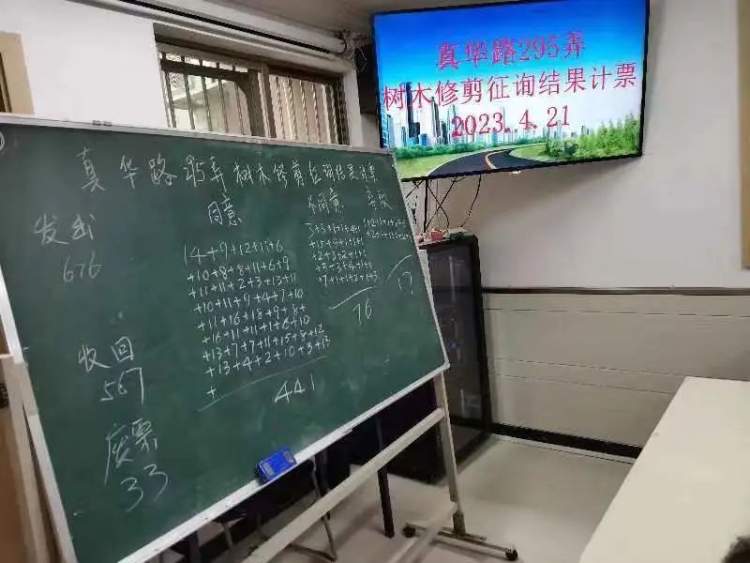 真华路295弄
树木修剪征询结果计票
2023.4.21
真华路295弄树木修剪征询结果计票
发出
676
收回
567
废票
33
同意
+10+8+8+11+6+9
+11+11+2+3+13+11
+10+11+9+4+7+10
+11+16+18+9+8+
+16+11+11+1+6+10
+13+7+7+11+15+8+12
+13+4+2+10+3+13
+
441
不同意
76
弃权
17